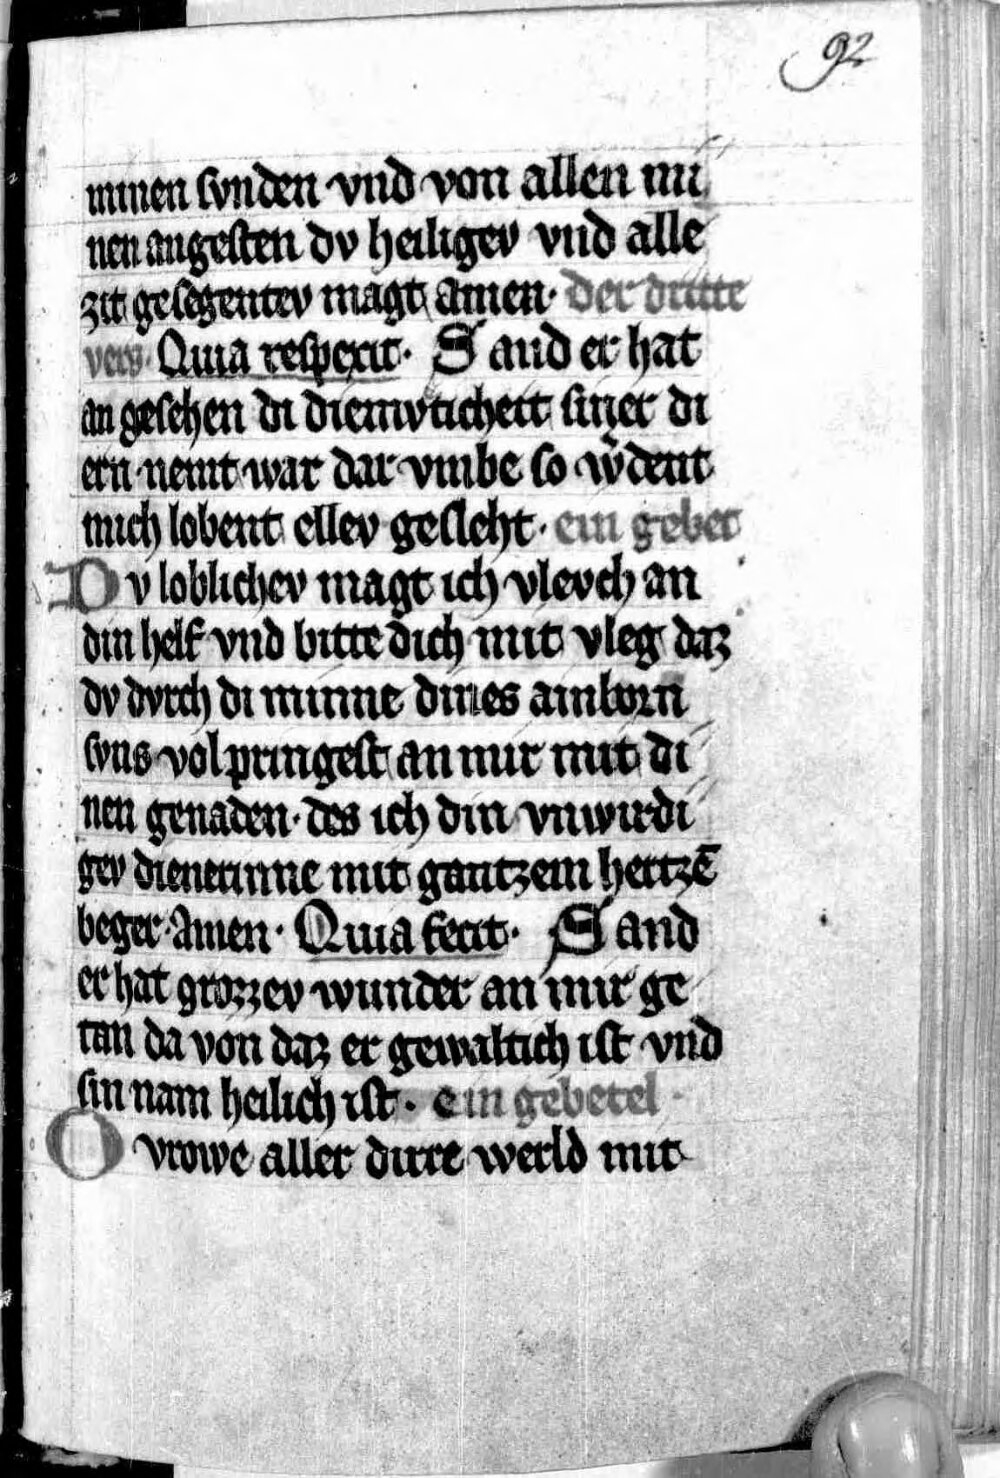 92
minen svnden vnd von allen mi
nen angesten dv heiligev vnd alle
zit gesegentev magt amen· der dritte
vers· Quia respexit· Sand er hat
an gesehen di diemvticheit siner di
ern nemt war dar vmbe so wͦdent
mich lobent ellev gesleht· ein gebet
Dv loblichev magt ich vlevch an
din helf vnd bitte dich mit vleg daz
dv dvrch di minne dines ainborn
svns volpringest an mir mit di
nen genaden· des ich din vnwirdi
gev dienerinne mit gantzem hertzē
beger· Amen· Quia fecit· Sand
er hat grozzev wunder an mir ge
tan da von daz er gewaltich ist vnd
sin nam heilich ist· ein gebetel·
O vrowe aller dirre werld mit